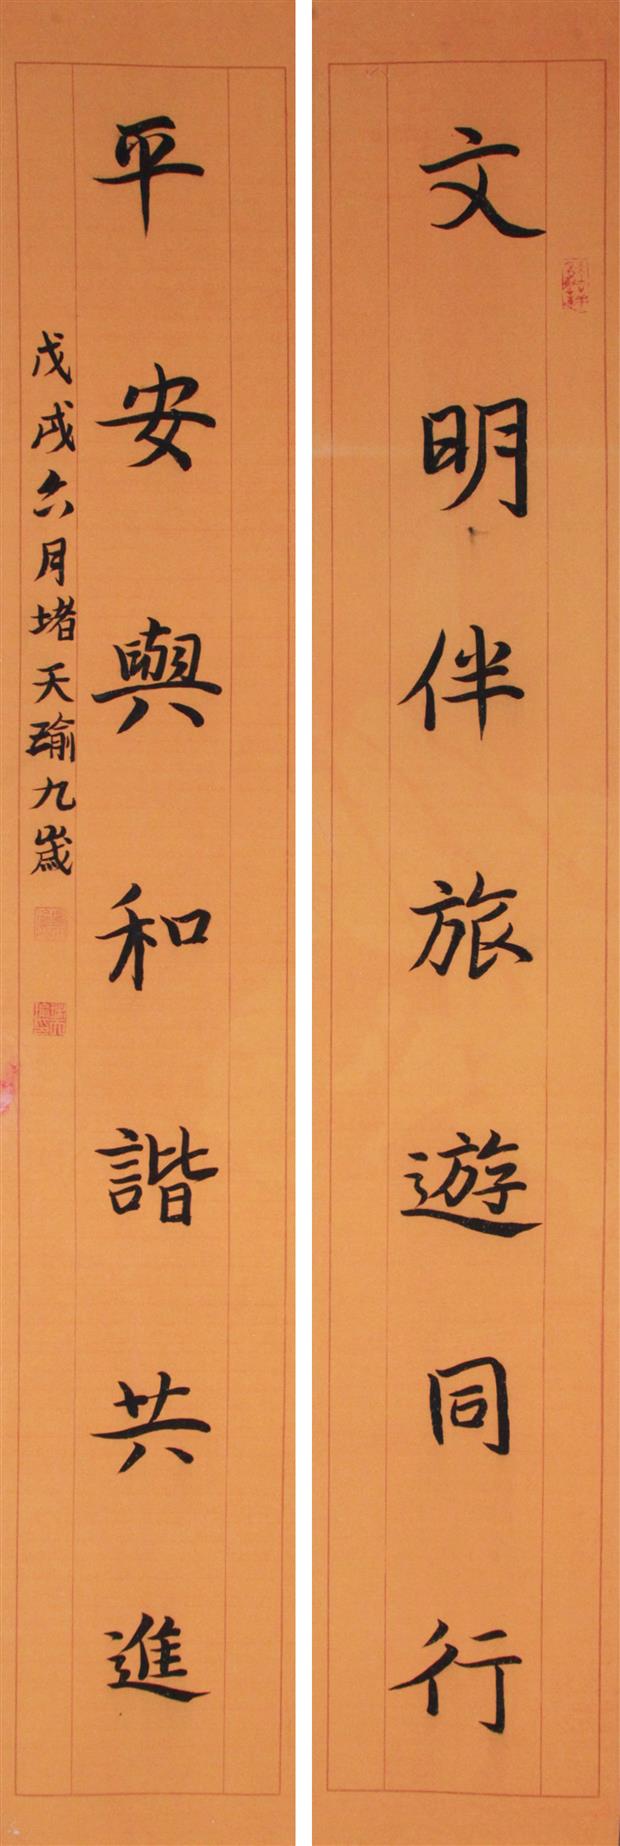 文明伴旅遊同行
平安與和諧共進
戊戌六月堵天瑜九歲